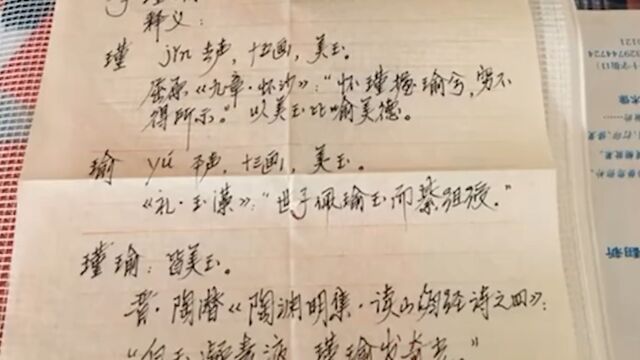 释义：
瑾 jǐn 去声，十五画，美玉。
屈原《九章·怀沙》："怀瑾握瑜兮，穷不
得所示。"以美玉比喻美德。
瑜 yú 平声，十三画，美玉。
《礼·玉藻》："世子佩瑜玉而綦组绶。"
瑾瑜：皆美玉。
晋·陶潜《陶渊明集·读山海经诗之四》：
"白玉凝素液，瑾瑜发奇光。"
翻新